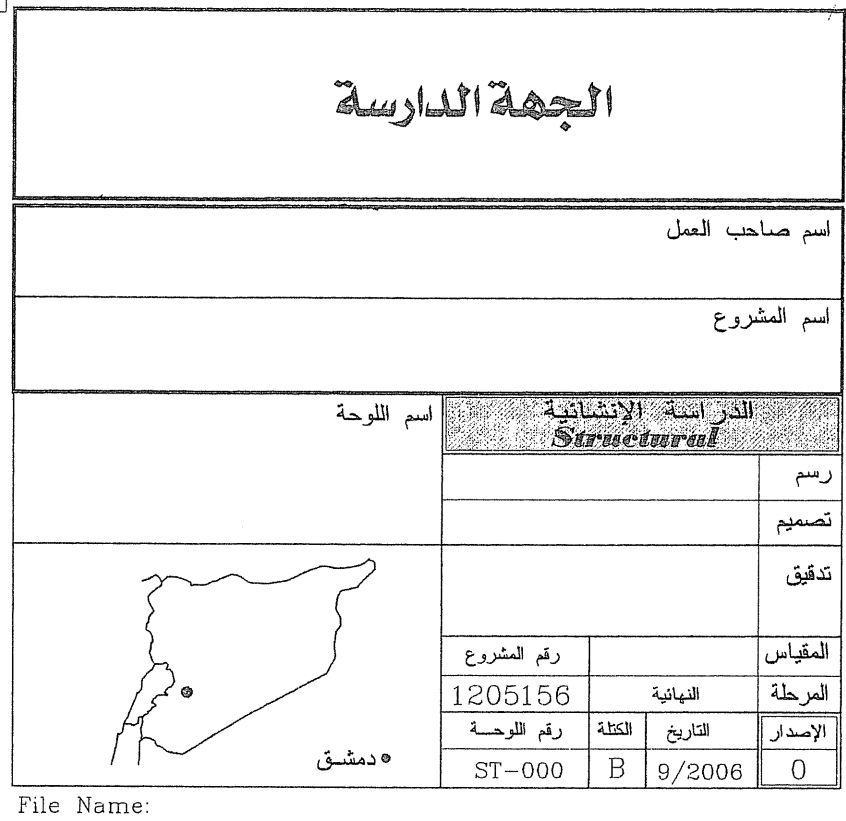 الجهة الدارسة
اسم صاحب العمل
اسم المشروع
الدراسة الإنشائية
Structural
اسم اللوحة
رسم
تصميم
تدقيق
المقياس
رقم المشروع
المرحلة
النهائية
1205156
الإصدار
التاريخ
الكتلة
رقم اللوحـــة
0
9/2006
B
ST-000
دمشــق
File Name: